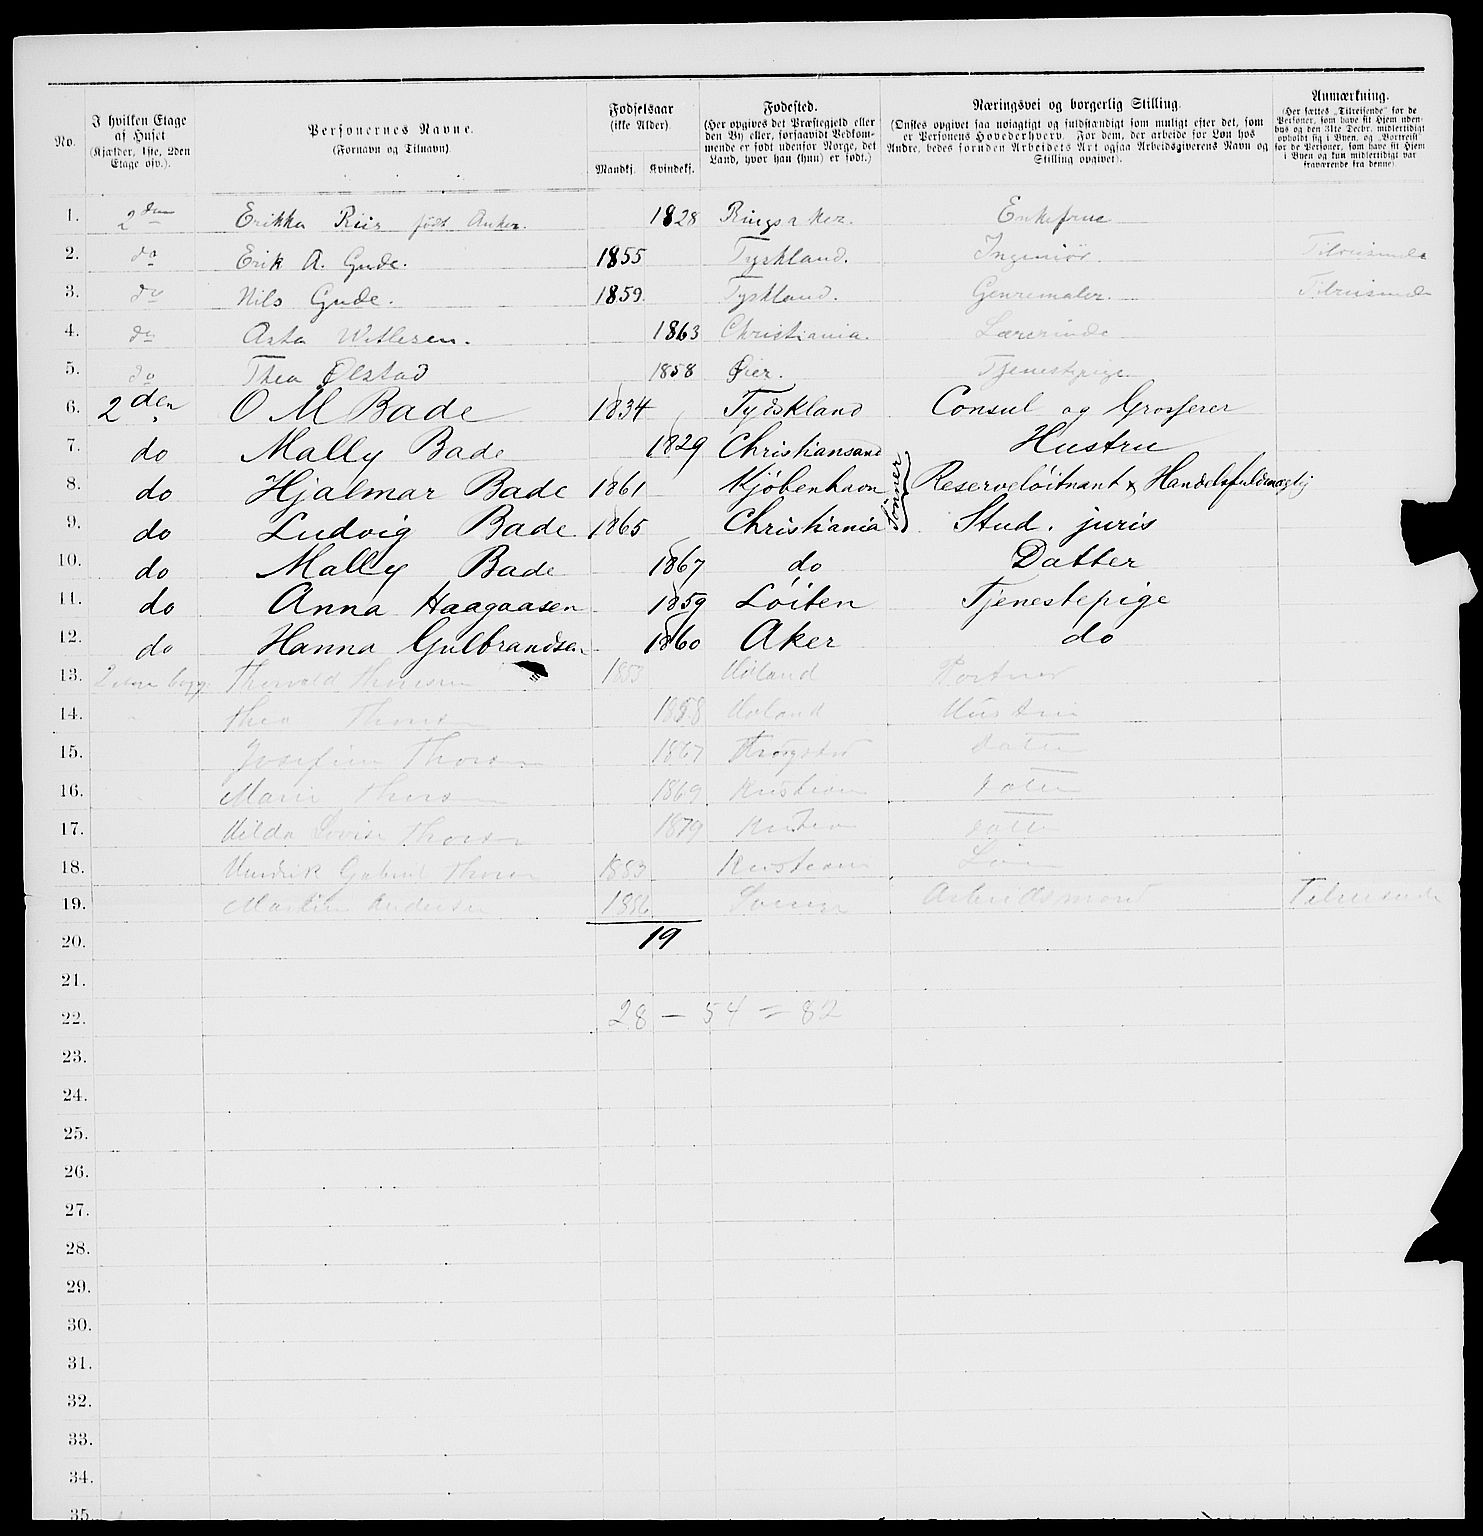 No.
I hvilken Etage af Huset (Kjælder, 1ste, 2den Etage osv.).
Personernes Navne. (Fornavn og Tilnavn)
Fødselsaar (ikke Alder).
Mandkj. Kvindekj.
Fødested. (Her opgives det Præstegjeld eller den By eller, forsaavidt Vedkommende er født udenfor Norge, det Land, hvor han (hun) er født.)
Næringsvei og borgerlig Stilling. (Ønskes opgivet saa nøiagtigt og fuldstændigt som muligt efter det, som er Personens Hovederhverv. For dem, der arbeide for Løn hos Andre, bedes foruden Arbeidets Art ogsaa Arbeidsgiverens Navn og Stilling opgivet).
Anmærkning. (Her sættes „Tilreisende" for de Personer, som have sit Hjem udenbys og den 31te Decbr. midlertidigt opholdt sig i Byen, og „Bortreist" for de Personer, som have sit Hjem i Byen og kun midlertidigt var fraværende fra denne).
1. 2den Erikka Riis født Anker. 1828 Ringsaker. Enkefrue
2. do Erik A. Gude. 1855 Tyskland. Ingeniør. Tilreisende
3. do Nils Gude. 1859. Tyskland. Genremaler. Tilreisende
4. do Asta Wetlesen. 1863 Christiania. Lærerinde
5. do Thea Ølstad 1858 Øier. Tjenestepige
6. 2den O M Bade 1834 Tydskland Consul og Grosserer
7. do Mally Bade 1829 Christiansand Hustru
8. do Hjalmar Bade 1861 Kjøbenhavn Sønner Reserveløitnant & Handelsfuldmægtig
9. do Ludvig Bade 1865 Christiania Stud. juris
10. do Mally Bade 1867 do Datter
11. do Anna Haagaasen 1859 Løiten Tjenestepige
12. do Hanna Gulbrandsen 1860 Aker do
13. Thorvald Thoresen 1853 Høland Portner
14. Thea Thoresen 1858 Høland Hustru
15. Josefine Thoresen 1867 Trøgstad Datter
16. Marie Thoresen 1869 Kristiania Datter
17. Hilda Lovise Thoresen 1879 Datter
18. Hendrik Gabriel Thoresen 1883 Kristiania Søn
19. Martin Andersen 1886 Arbeidsmand Tilreisende
20. 19
21.
22. 28 — 54 = 82
23.
24.
25.
26.
27.
28.
29.
30.
31.
32.
33.
34.
35.